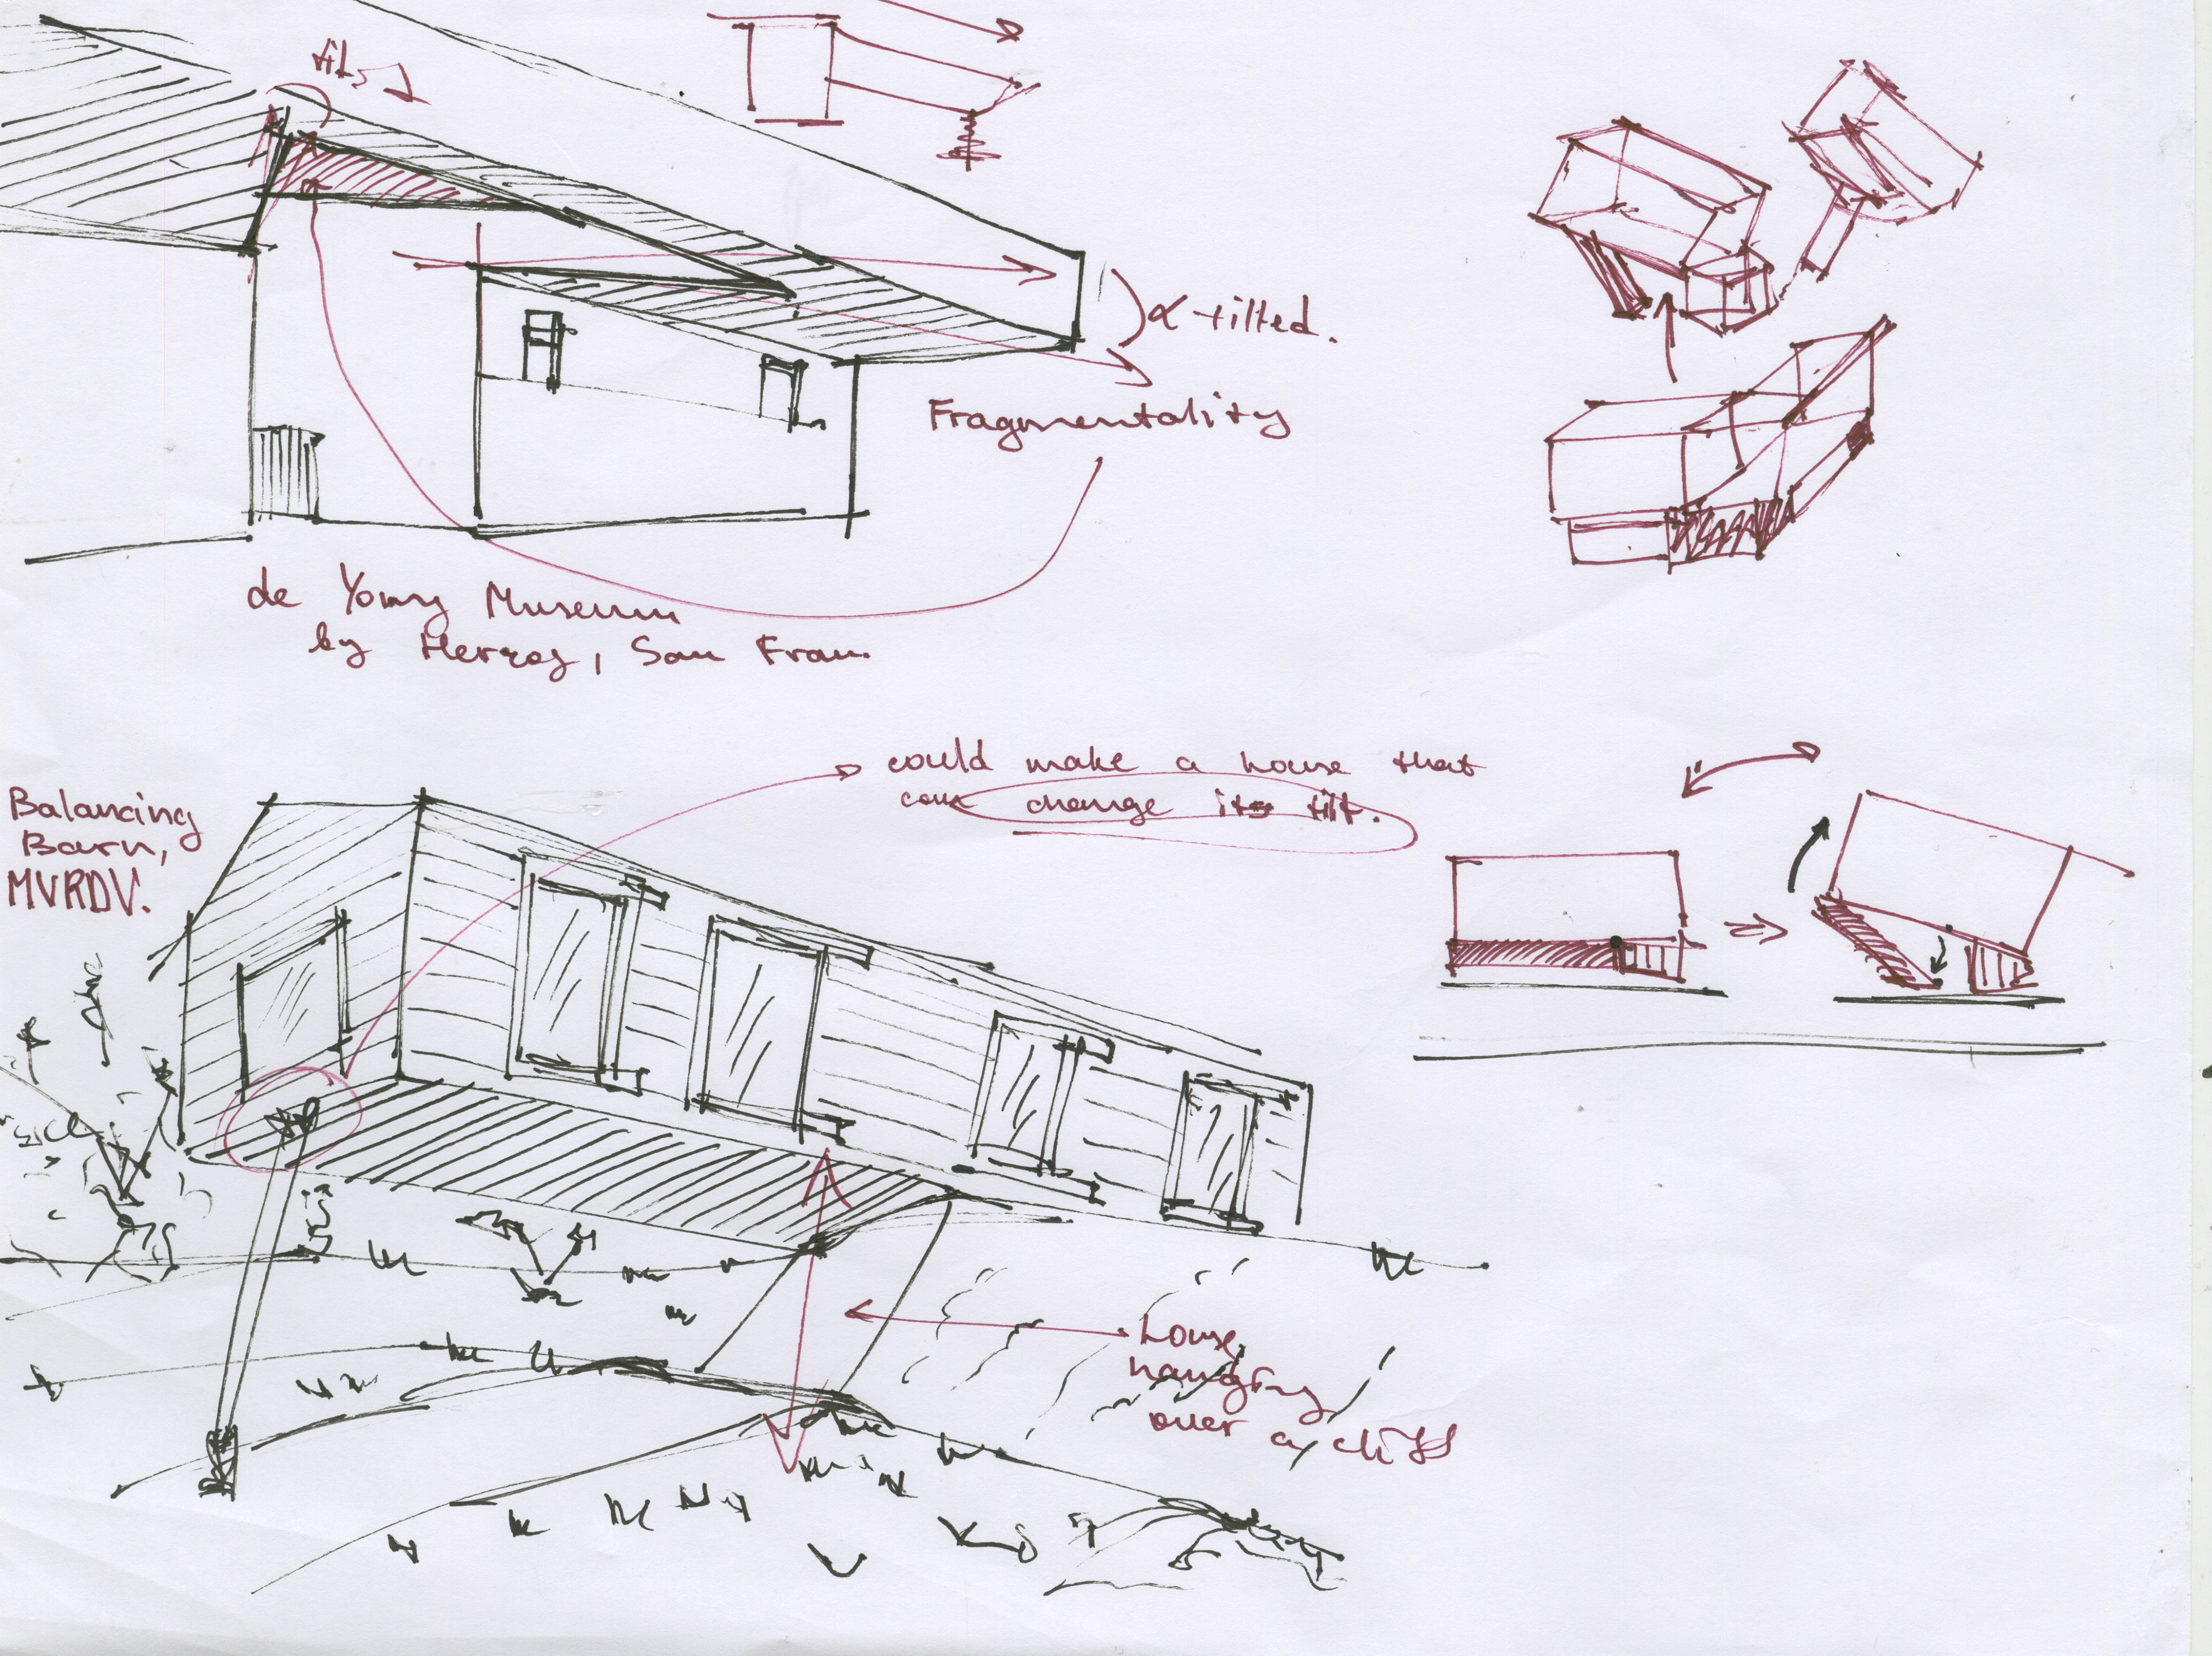 tilt
α tilted.
Fragmentality
de Young Museum
by Herzog, San Fran.
could make a house that
can change its tilt.
Balancing
Barn,
MVRDV.
house
hanging
over a cliff